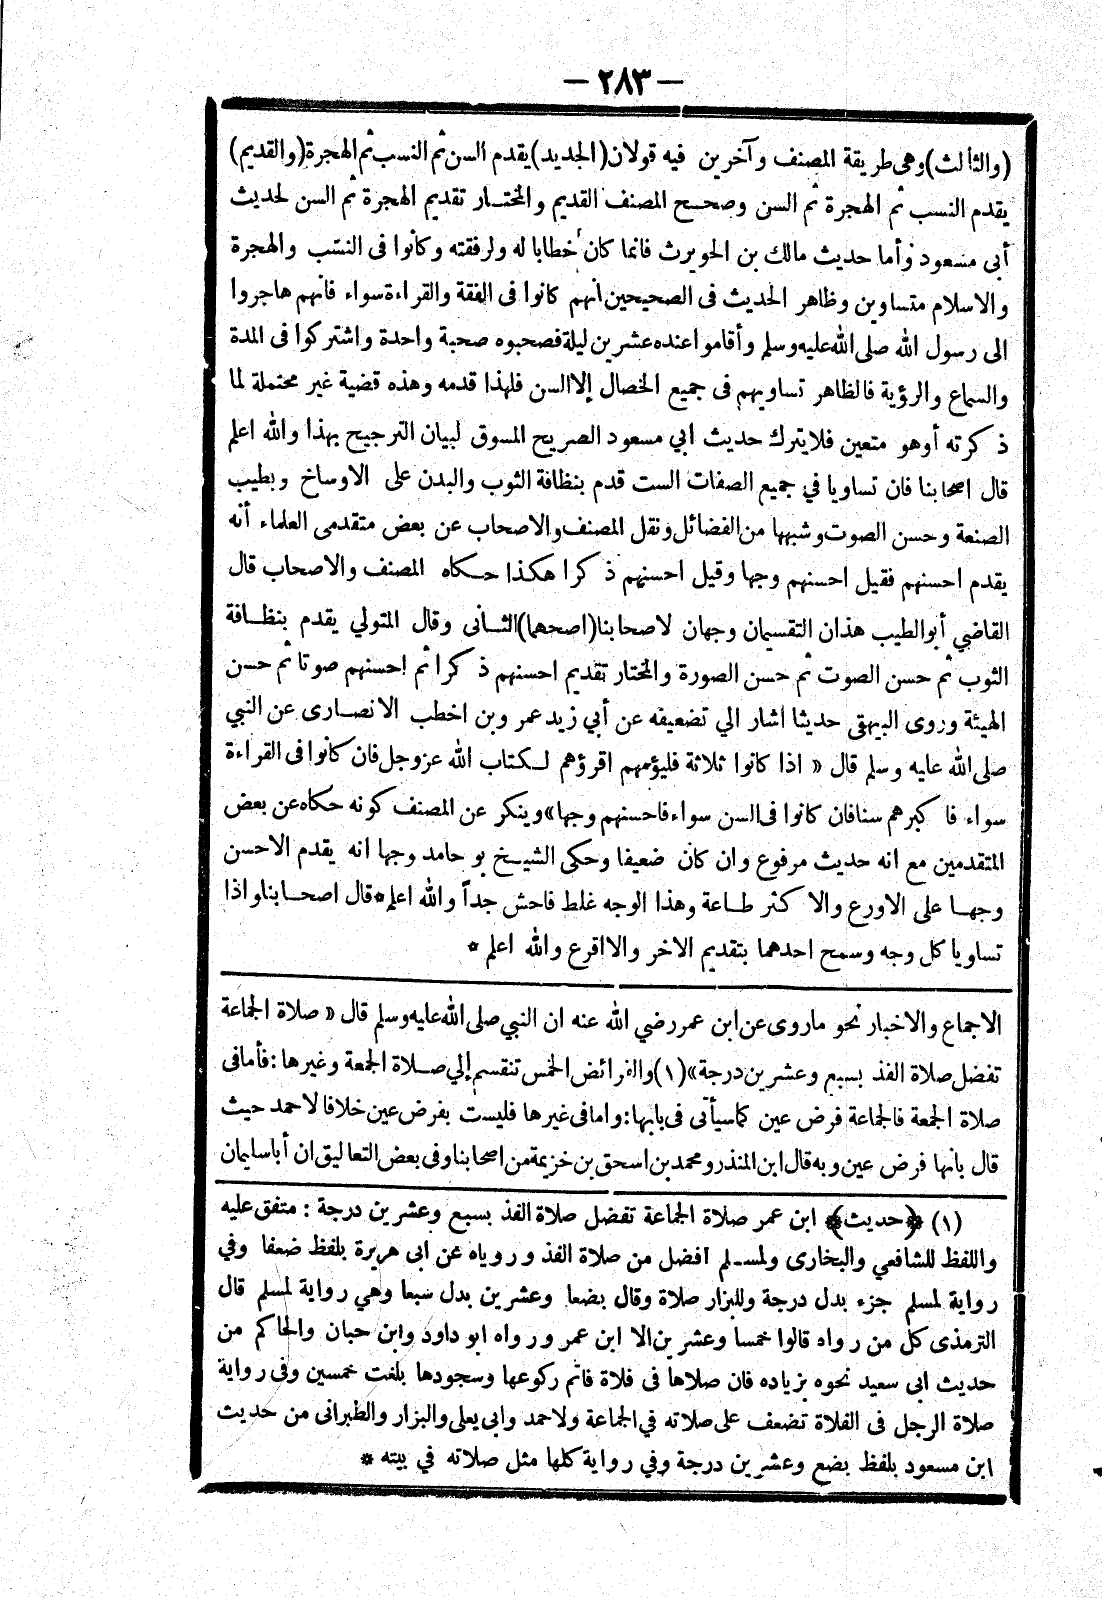 — ٢٨٣ —
(والثالث) وهى طريقة المصنف وآخرين فيه قولان (الجديد) يقدم السن ثم النسب ثم الهجرة (والقديم)
يقدم النسب ثم الهجرة ثم السن وصحح المصنف القديم والمختار تقديم الهجرة ثم السن لحديث
أبى مسعود وأما حديث مالك بن الحويرث فانما كان خطابا له ولرفقته وكانوا فى النسب والهجرة
والاسلام متساوين وظاهر الحديث فى الصحيحين أنهم كانوا فى الفقة والقراءة سواء فانهم هاجروا
الى رسول الله صلى الله عليه وسلم وأقاموا عنده عشرين ليلة فصحبوه صحبة واحدة واشتركوا فى المدة
والسماع والرؤية فالظاهر تساويهم فى جميع الخصال إلا السن فلهذا قدمه وهذه قضية غير محتملة لما
ذكرته أو هو متعين فلا يترك حديث ابي مسعود الصريح المسوق لبيان الترجيح بهذا والله اعلم
قال اصحابنا فان تساويا في جميع الصفات الست قدم بنظافة الثوب والبدن على الاوساخ وبطيب
الصنعة وحسن الصوت وشبهها من الفضائل ونقل المصنف والاصحاب عن بعض متقدمى العلماء أنه
يقدم احسنهم فقيل احسنهم وجها وقيل احسنهم ذكرا هكذا حكاه المصنف والاصحاب قال
القاضي أبو الطيب هذان التقسيمان وجهان لاصحابنا (اصحهما) الثانى وقال المتولي يقدم بنظافة
الثوب ثم حسن الصوت ثم حسن الصورة والمختار تقديم احسنهم ذكرا ثم احسنهم صوتا ثم حسن
الهيئة وروى البيهقى حديثا اشار الي تضعيفه عن أبي زيد عمر وبن اخطب الانصارى عن النبي
صلى الله عليه وسلم قال « اذا كانوا ثلاثة فليؤمهم اقرؤهم لكتاب الله عز وجل فان كانوا فى القراءة
سواء فا كبرهم سنا فان كانوا فى السن سواء فاحسنهم وجها» وينكر عن المصنف كونه حكاه عن بعض
المتقدمين مع انه حديث مرفوع وان كان ضعيفا وحكى الشيخ بو حامد وجها انه يقدم الاحسن
وجها على الاورع والا كثر طاعة وهذا الوجه غلط فاحش جداً والله اعلم * قال اصحابنا واذا
تساويا كل وجه وسمح احدهما بتقديم الاخر والا اقرع والله اعلم *
الاجماع والاخبار نحو ماروى عن ابن عمر رضي الله عنه ان النبي صلى الله عليه وسلم قال « صلاة الجماعة
تفضل صلاة الفذ بسبع وعشرين درجة» (١) والفرائض الخمس تنقسم إلي صلاة الجمعة وغيرها : فأمافى
صلاة الجمعة فالجماعة فرض عين كما سيأتى فى بابها : واما فى غيرها فليست بفرض عين خلافا لاحمد حيث
قال بانها فرض عين وبه قال ابن المنذر ومحمد بن اسحق بن خزيمة من اصحابنا وفى بعض التعاليق ان أبا سليمان
(١) ﴿حديث﴾ ابن عمر صلاة الجماعة تفضل صلاة الفذ بسبع وعشرين درجة : متفق عليه
واللفظ للشافعي والبخارى ولمسلم افضل من صلاة الفذ وروياه عن ابى هريرة بلفظ ضعفا وفي
رواية لمسلم جزء بدل درجة وللبزار صلاة وقال بضعا وعشرين بدل سبعا وهي رواية لمسلم قال
الترمذى كل من رواه قالوا خمسا وعشرين الا ابن عمر ورواه ابو داود وابن حبان والحاكم من
حديث ابى سعيد نحوه بزياده فان صلاها فى فلاة فاتم ركوعها وسجودها بلغت خمسين وفى رواية
صلاة الرجل فى الفلاة تضعف على صلاته في الجماعة ولاحمد وابى يعلى والبزار والطبرانى من حديث
ابن مسعود بلفظ بضع وعشرين درجة وفي رواية كلها مثل صلاته في بيته *